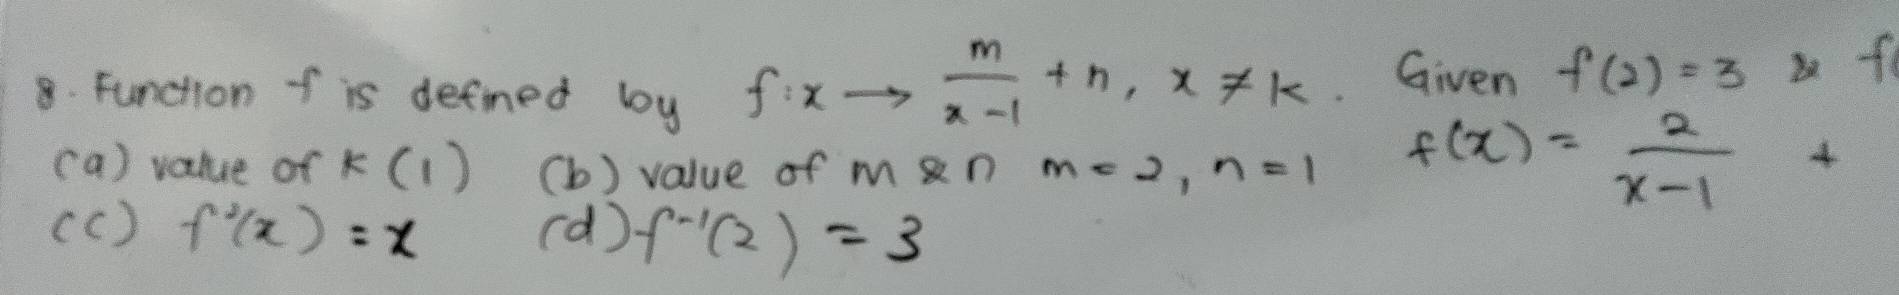 8. Function f is defined by f:x → m/(x-1) + n, x ≠ k. Given f(2) = 3 & f(
(a) value of k (1) (b) value of m & n m = 2, n = 1 f(x) = 2/(x-1) +
(c) f²(x) = x (d) f⁻¹(2) = 3